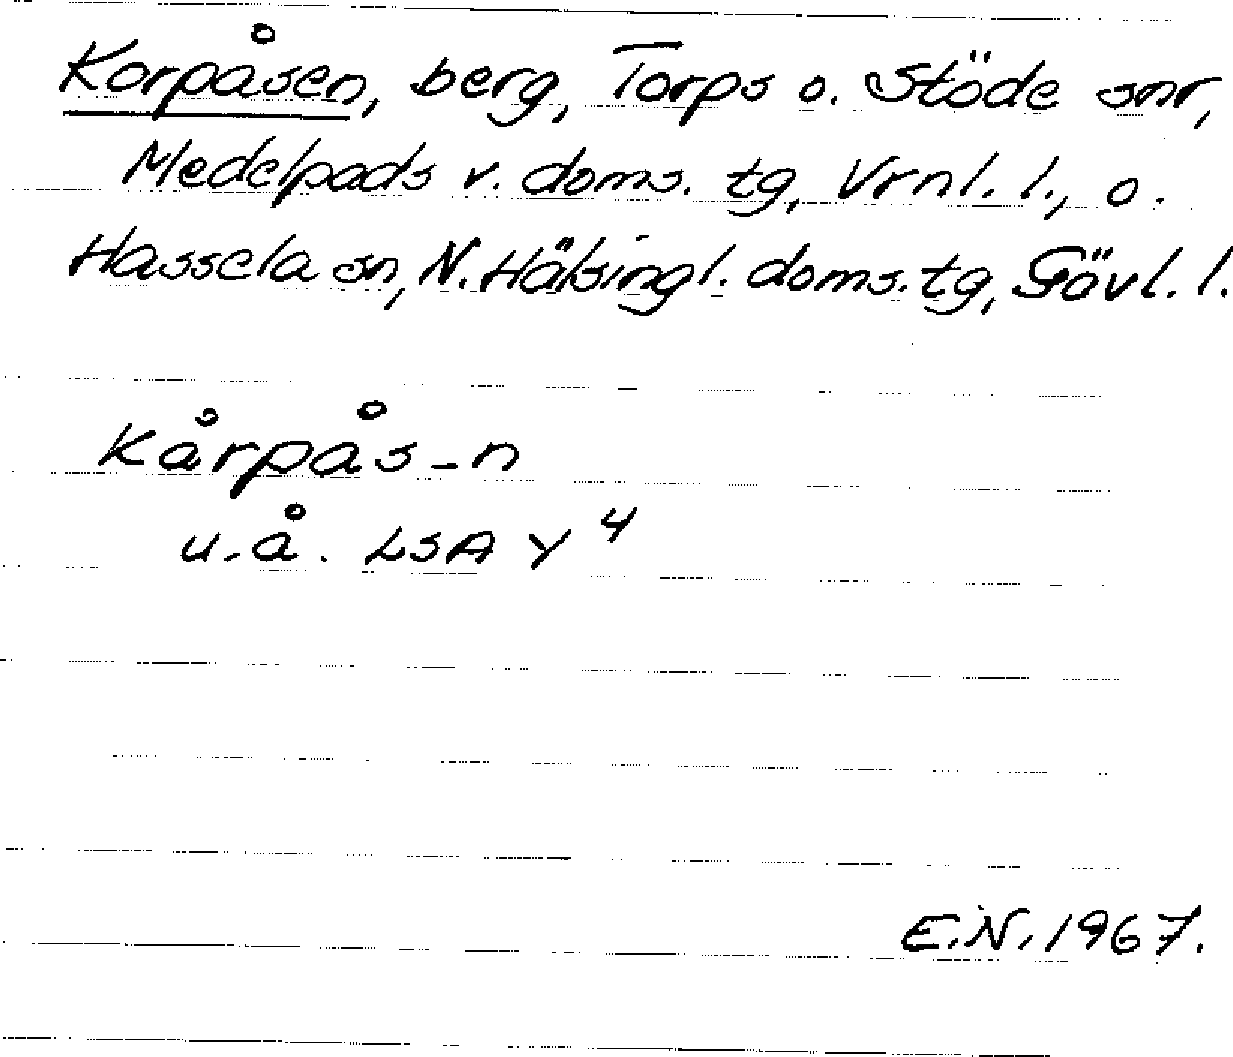 Korpåsen, berg, Torps o. Stöde snr,
Medelpads v. doms. tg, Vrnl. l., o.
Hassela sn, N. Hälsingl. doms. tg, Gävl. l.
Kårpås-n
u.å. LSA Y 4
E.N. 1967.